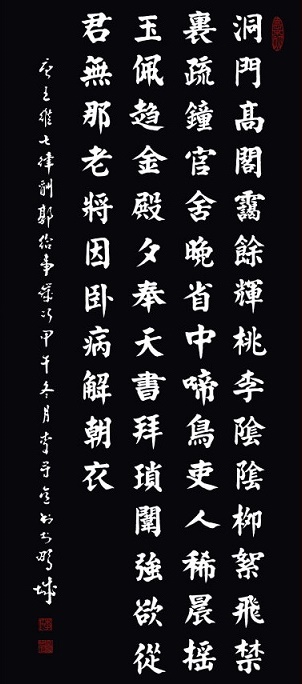 洞門髙閣靄餘輝桃李陰陰柳絮飛禁
裏疏鐘官舍晚省中啼鳥吏人稀晨摇
玉佩趋金殿夕奉天書拜瑣闈強欲從
君無那老將因卧病解朝衣
王維七律酬郭給事歲次甲午冬月李守书于鹏城